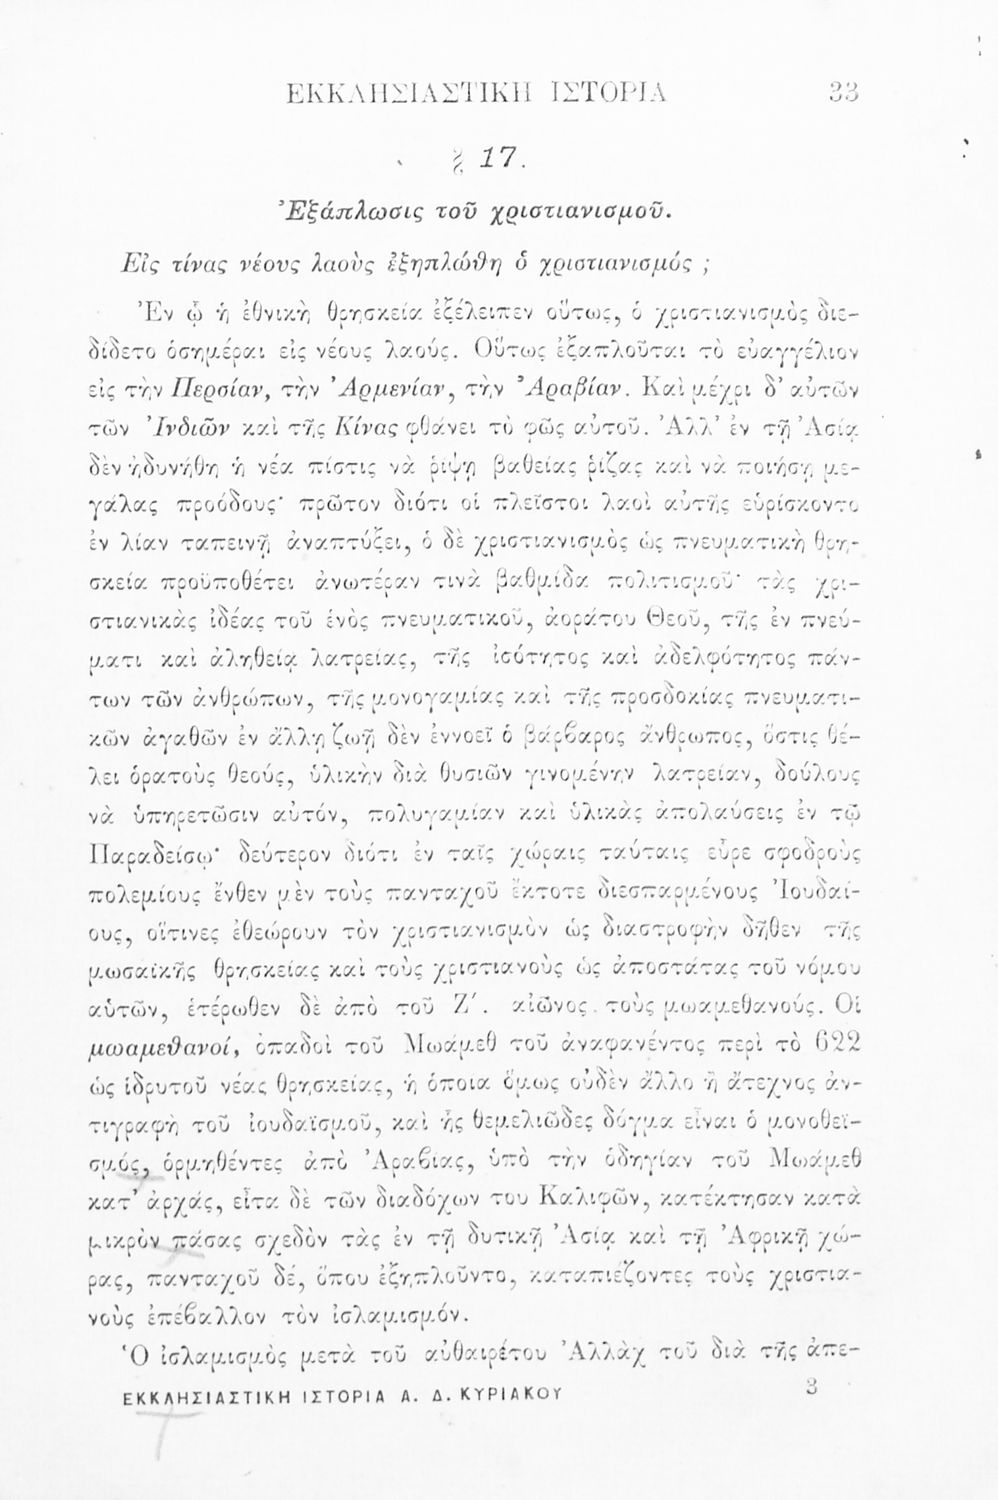 ΕΚΚΛΗΣΙΑΣΤΙΚΗ ΙΣΤΟΡΙΑ 33
§ 17.
Ἐξάπλωσις τοῦ χριστιανισμοῦ.
Εἰς τίνας νέους λαοὺς ἐξηπλώθη ὁ χριστιανισμός ;
Ἐν ᾧ ἡ ἐθνικὴ θρησκεία ἐξέλειπεν οὕτως, ὁ χριστιανισμὸς διε-
δίδετο ὁσημέραι εἰς νέους λαούς. Οὕτως ἐξαπλοῦται τὸ εὐαγγέλιον
εἰς τὴν Περσίαν, τὴν Ἀρμενίαν, τὴν Ἀραβίαν. Καὶ μέχρι δ’ αὐτῶν
τῶν Ἰνδιῶν καὶ τῆς Κίνας φθάνει τὸ φῶς αὐτοῦ. Ἀλλ’ ἐν τῇ Ἀσίᾳ
δὲν ἠδυνήθη ἡ νέα πίστις νὰ ῥίψῃ βαθείας ῥίζας καὶ νὰ ποιήσῃ με-
γάλας προόδους· πρῶτον διότι οἱ πλεῖστοι λαοὶ αὐτῆς εὑρίσκοντο
ἐν λίαν ταπεινῇ ἀναπτύξει, ὁ δὲ χριστιανισμὸς ὡς πνευματικὴ θρη-
σκεία προϋποθέτει ἀνωτέραν τινὰ βαθμίδα πολιτισμοῦ· τὰς χρι-
στιανικὰς ἰδέας τοῦ ἑνὸς πνευματικοῦ, ἀοράτου Θεοῦ, τῆς ἐν πνεύ-
ματι καὶ ἀληθείᾳ λατρείας, τῆς ἰσότητος καὶ ἀδελφότητος πάν-
των τῶν ἀνθρώπων, τῆς μονογαμίας καὶ τῆς προσδοκίας πνευματι-
κῶν ἀγαθῶν ἐν ἄλλῃ ζωῇ δὲν ἐννοεῖ ὁ βάρβαρος ἄνθρωπος, ὅστις θέ-
λει ὁρατοὺς θεούς, ὑλικὴν διὰ θυσιῶν γινομένην λατρείαν, δούλους
νὰ ὑπηρετῶσιν αὐτόν, πολυγαμίαν καὶ ὑλικὰς ἀπολαύσεις ἐν τῷ
Παραδείσῳ· δεύτερον διότι ἐν ταῖς χώραις ταύταις εὗρε σφοδροὺς
πολεμίους ἔνθεν μὲν τοὺς πανταχοῦ ἔκτοτε διεσπαρμένους Ἰουδαί-
ους, οἵτινες ἐθεώρουν τὸν χριστιανισμὸν ὡς διαστροφὴν δῆθεν τῆς
μωσαϊκῆς θρησκείας καὶ τοὺς χριστιανοὺς ὡς ἀποστάτας τοῦ νόμου
αὐτῶν, ἑτέρωθεν δὲ ἀπὸ τοῦ Ζ΄. αἰῶνος τοὺς μωαμεθανούς. Οἱ
μωαμεθανοί, ὀπαδοὶ τοῦ Μωάμεθ τοῦ ἀναφανέντος περὶ τὸ 622
ὡς ἱδρυτοῦ νέας θρησκείας, ἡ ὁποία ὅμως οὐδὲν ἄλλο ἢ ἄτεχνος ἀν-
τιγραφὴ τοῦ ἰουδαϊσμοῦ, καὶ ἧς θεμελιῶδες δόγμα εἶναι ὁ μονοθεϊ-
σμός, ὁρμηθέντες ἀπὸ Ἀραβίας, ὑπὸ τὴν ὁδηγίαν τοῦ Μωάμεθ
κατ’ ἀρχάς, εἶτα δὲ τῶν διαδόχων του Καλιφῶν, κατέκτησαν κατὰ
μικρὸν πάσας σχεδὸν τὰς ἐν τῇ δυτικῇ Ἀσίᾳ καὶ τῇ Ἀφρικῇ χώ-
ρας, πανταχοῦ δέ, ὅπου ἐξηπλοῦντο, καταπιέζοντες τοὺς χριστια-
νοὺς ἐπέβαλλον τὸν ἰσλαμισμόν.
Ὁ ἰσλαμισμὸς μετὰ τοῦ αὐθαιρέτου Ἀλλὰχ τοῦ διὰ τῆς ἀπε-
ΕΚΚΛΗΣΙΑΣΤΙΚΗ ΙΣΤΟΡΙΑ Α. Δ. ΚΥΡΙΑΚΟΥ 3